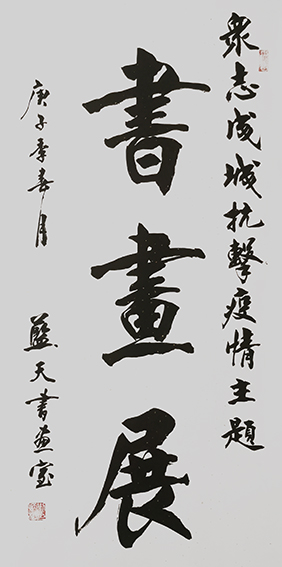 眾志成城抗擊疫情主題
書畫展
庚子季春月
藍天書畫室